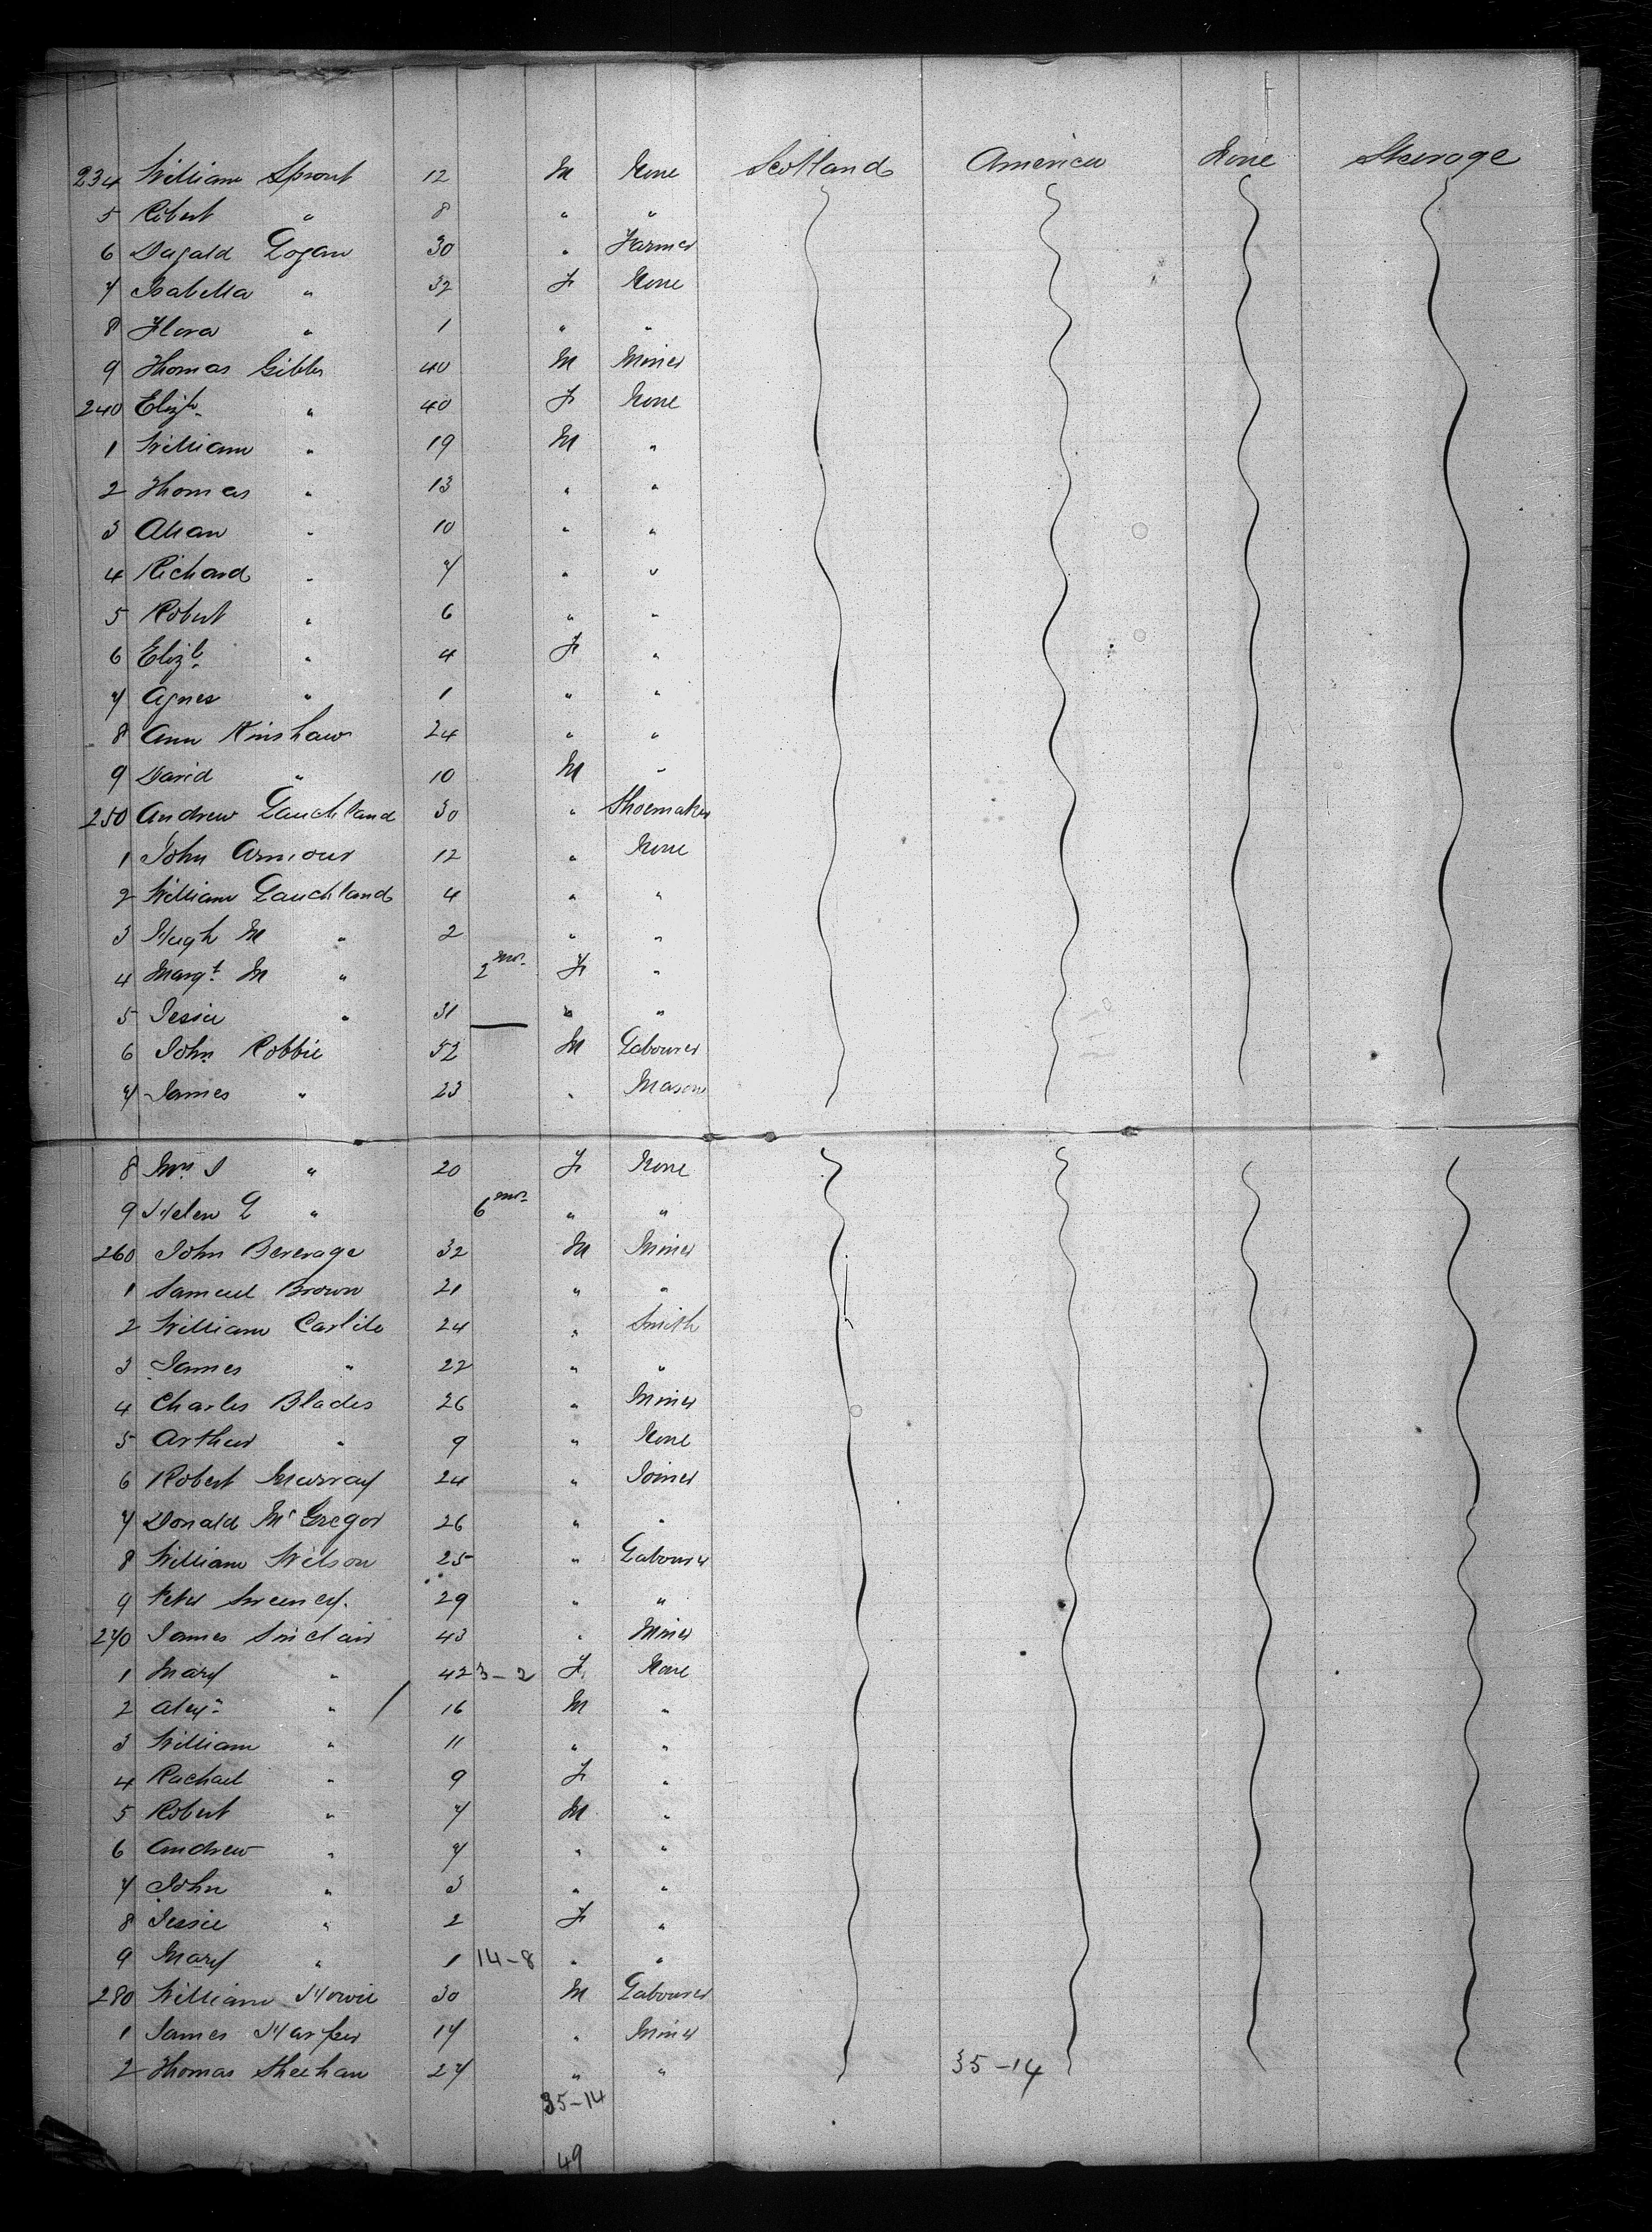 234 William Sprout 12 M None Scotland America None Steerage
5 Robert " 8 " "
6 Dugald Logan 30 " Farmer
7 Isabella " 32 F None
8 Flora " 1 " "
9 Thomas Gibbs 40 M Miner
240 Elizth " 40 F None
1 William " 19 M "
2 Thomas " 13 " "
3 Allan " 10 " "
4 Richard " 7 " "
5 Robert " 6 " "
6 Elizth " 4 F "
7 Agnes " 1 " "
8 Ann Kinshaw 24 " "
9 David " 10 M "
250 Andrew Lauchland 30 " Shoemaker
1 John Armour 12 " None
2 William Lauchland 4 " "
3 Hugh M " 2 " "
4 Margt M " 2 mos F "
5 Jessie " 31 " "
6 John Robbie 52 M Labourer
7 James " 23 " Mason
8 Mrs J " 20 F None
9 Helen L " 6 mos " "
260 John Beverage 32 M Miner
1 Samuel Brown 21 " "
2 William Carlile 24 " Smith
3 James " 22 " "
4 Charles Blades 26 " Miner
5 Arthur " 9 " None
6 Robert Murray 24 " Joiner
7 Donald McGregor 26 " "
8 William Wilson 25 " Labourer
9 Peter Sweeney 29 " "
270 James Sinclair 43 " Miner
1 Mary " 42 3-2 F None
2 Alexr " 16 M "
3 William " 11 " "
4 Rachael " 9 F "
5 Robert " 7 M "
6 Andrew " 7 " "
7 John " 3 " "
8 Jessie " 2 F "
9 Mary " 1 14-8 " "
280 William Howie 30 M Labourer
1 James Harper 17 " Miner
2 Thomas Sheehan 27 " " 35-14
35-14
49